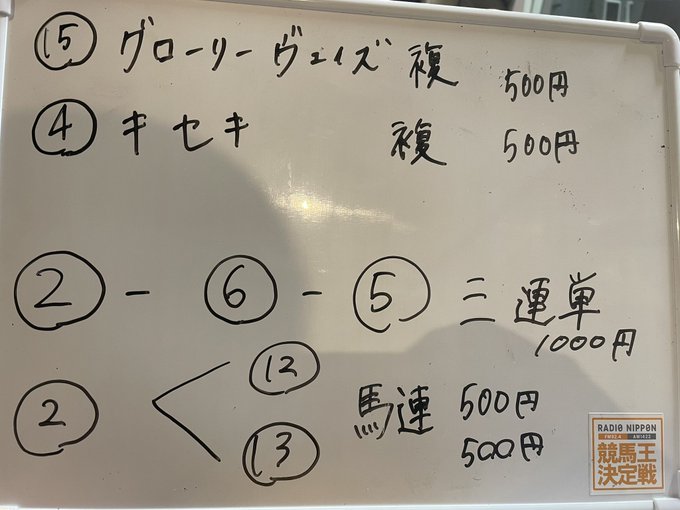 ⑮ グローリーヴェイズ 複 500円
④ キセキ 複 500円
② - ⑥ - ⑤ 三連単
1000円
② < ⑫ 馬連 500円
⑬ 500円
RADIO NIPPON
FM92.4 AM1422
競馬王
決定戦